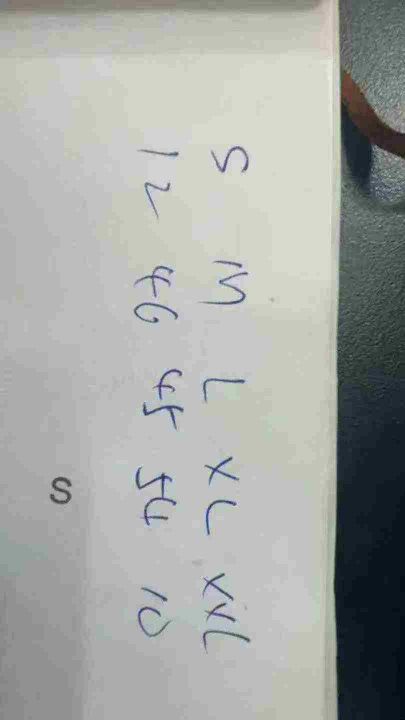 S M L XL XXL
12 46 45 54 10
S